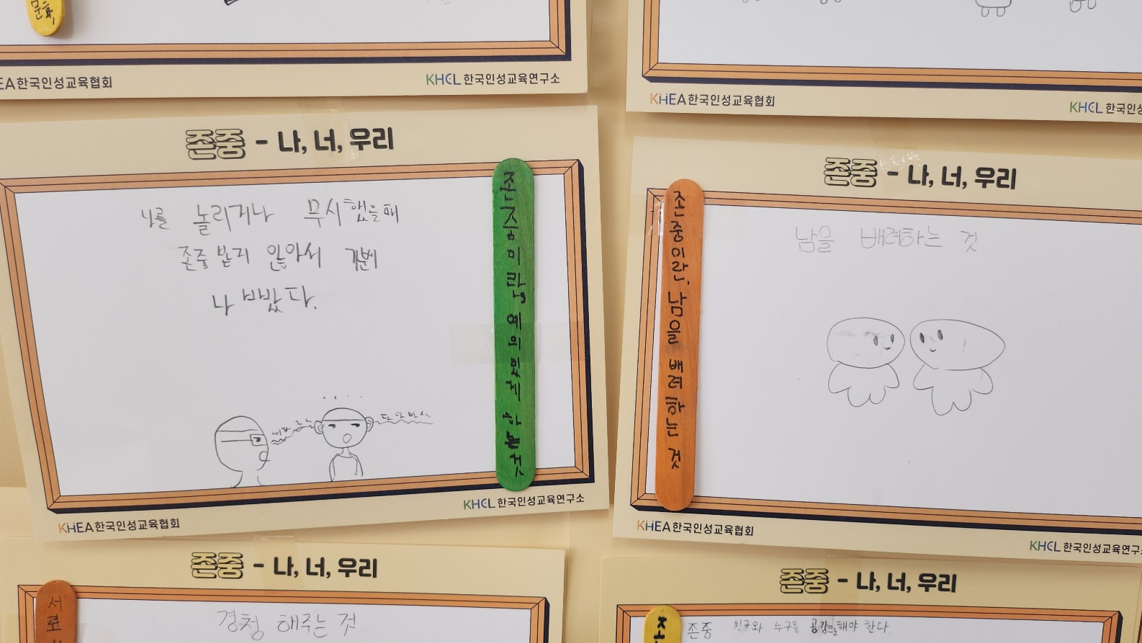 문화
KHEA한국인성교육협회
KHCL 한국인성교육연구소
KHEA한국인성교육협회
KHCL 한국인성
존중 - 나, 너, 우리
나를 놀리거나 무시했을때
존중 받지 않아서 기분이
나빴다.
존중이란, 예의있게 하는것
KHEA한국인성교육협회
KHCL 한국인성교육연구소
존중 - 나, 너, 우리
남을 배려하는 것
존중이란, 남을 배려하는 것
KHEA한국인성교육협회
KHCL 한국인성교육연구
존중 - 나, 너, 우리
서로
경청 해주는 것
존중 - 나, 너, 우리
존중 친구와 누구를 공감을해야 한다